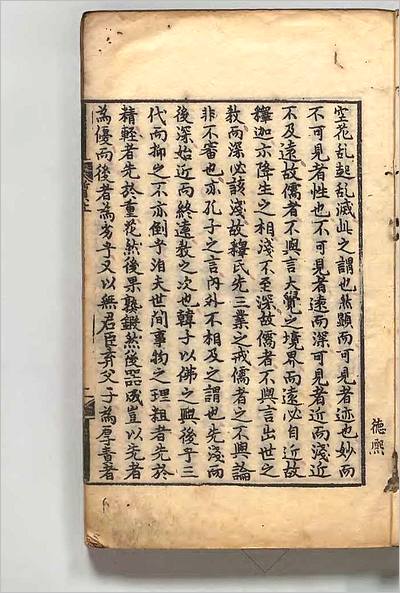 空花乱起乱滅此之謂也然顕而可見者迹也妙而
不可見者性也不可見者遠而深可見者近而淺近
不及遠故儒者不與言大覺之境界而遠必自近故
釋迦亦降生之相淺不至深故儒者不與言出世之
教而深必該淺故釋氏先三業之戒儒者之不與論
非不審也亦孔子之言内外不相及之謂也先淺而
後深始近而終遠教之次也韓子以佛之典後乎三
代而抑之不亦倒乎洎夫世間事物之理粗者先於
精輕者先於重花然後果熟鍛然後器成豈以先者
為優而後者為劣乎又以無君臣弃父子為厚者者
德熈